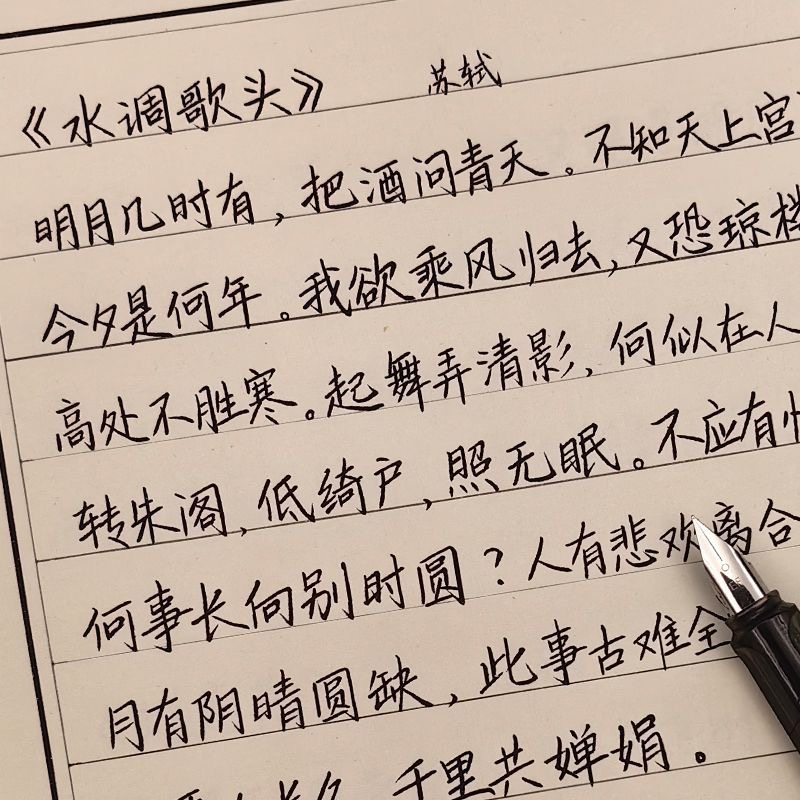 《水调歌头》 苏轼
明月几时有，把酒问青天。不知天上宫
今夕是何年。我欲乘风归去，又恐琼楼
高处不胜寒。起舞弄清影，何似在人
转朱阁，低绮户，照无眠。不应有恨
何事长向别时圆？人有悲欢离合
月有阴晴圆缺，此事古难全
长久 千里共婵娟。